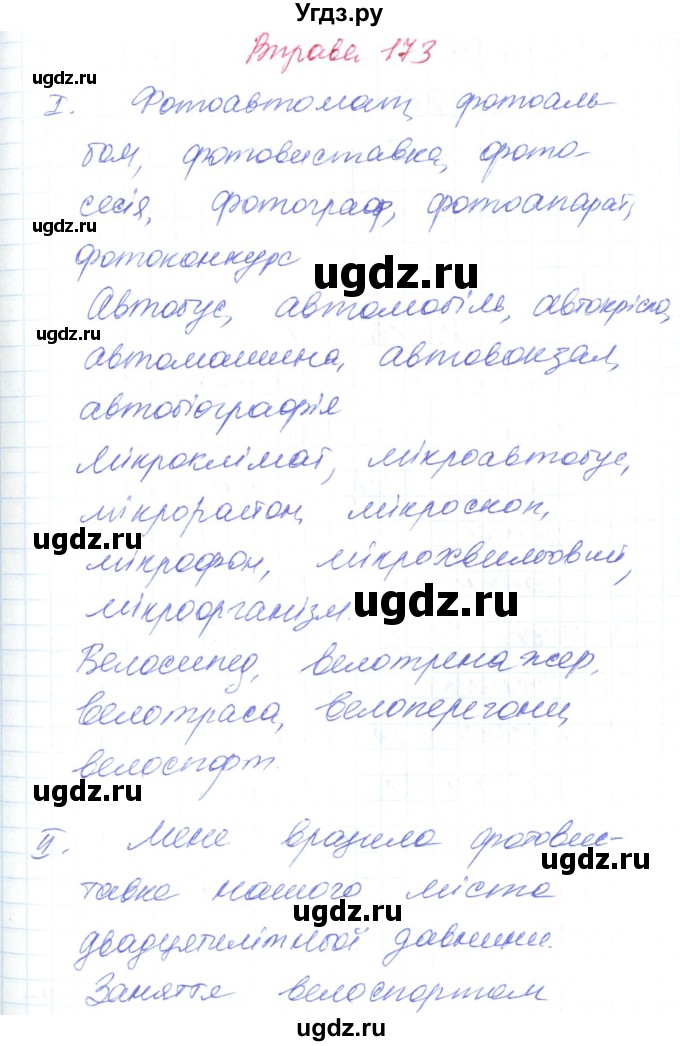 Угдз.ру
Вправа 173
ugdz.ru
I. Фотоавтомат, фотоаль-
бом, фотовиставка, фото-
сесія, фотограф, фотоапарат,
ugdz.ru
фотоконкурс
ugdz.ru
Автобус, автомобіль, автокрісло,
ugdz.ru
автомашина, автовокзал,
автобіографія
Мікроклімат, мікроавтобус,
мікрорайон, мікроскоп,
ugdz.ru
мікрофон, мікрохвильовий,
мікроорганізм.
ugdz.ru
Велосипед, велотренажер,
велотраса, велоперегони,
велоспорт.
ugdz.ru
II. Мене вразила фотовис-
ugdz.ru
тавка нашого міста
ugdz.ru
двадцятилітньої давнини.
Заняття велоспортом
ugdz.ru